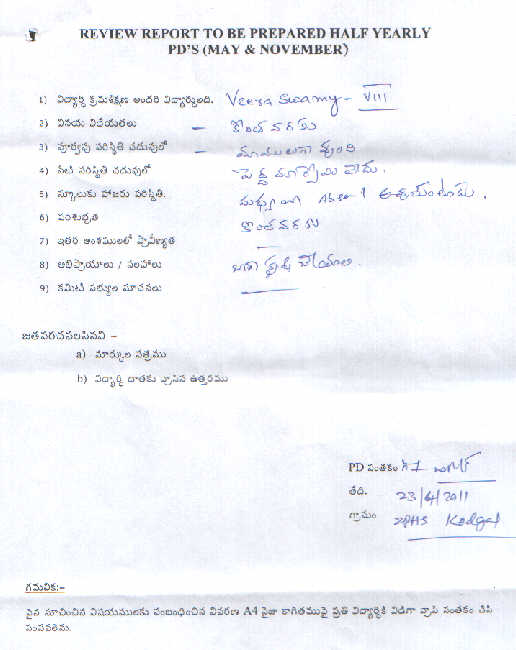 REVIEW REPORT TO BE PREPARED HALF YEARLY
PD'S (MAY & NOVEMBER)
1) విద్యార్థి క్రమశిక్షణ అందరి విద్యార్థులది. Veera Swamy - VIII
2) వినయ విధేయతలు — కొంత వరకు
3) పూర్వపు పరిస్థితి చదువులో — మామూలుగా వుంది
4) నేటి పరిస్థితి చదువులో పెద్ద మార్పేమి లేదు.
5) స్కూలుకు హాజరు పరిస్థితి.
6) పరిశుభ్రత కొంతవరకు
7) ఇతర అంశములలో ప్రావీణ్యత —
8) అభిప్రాయాలు / సలహాలు బాగా కృషి చేయాలి.
9) కమిటి సభ్యుల సూచనలు —
జతపరచవలసినవి –
a) మార్కుల పత్రము
b) విద్యార్థి దాతకు వ్రాసిన ఉత్తరము
PD సంతకం
తేది. 23/4/2011
గ్రామం ZPHS Kodgal
గమనిక:-
పైన సూచించిన విషయములకు సంబంధించిన వివరణ A4 సైజు కాగితముపై ప్రతి విద్యార్థికి విడిగా వ్రాసి సంతకం చేసి
పంపవలెను.